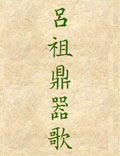 呂祖鼎器歌